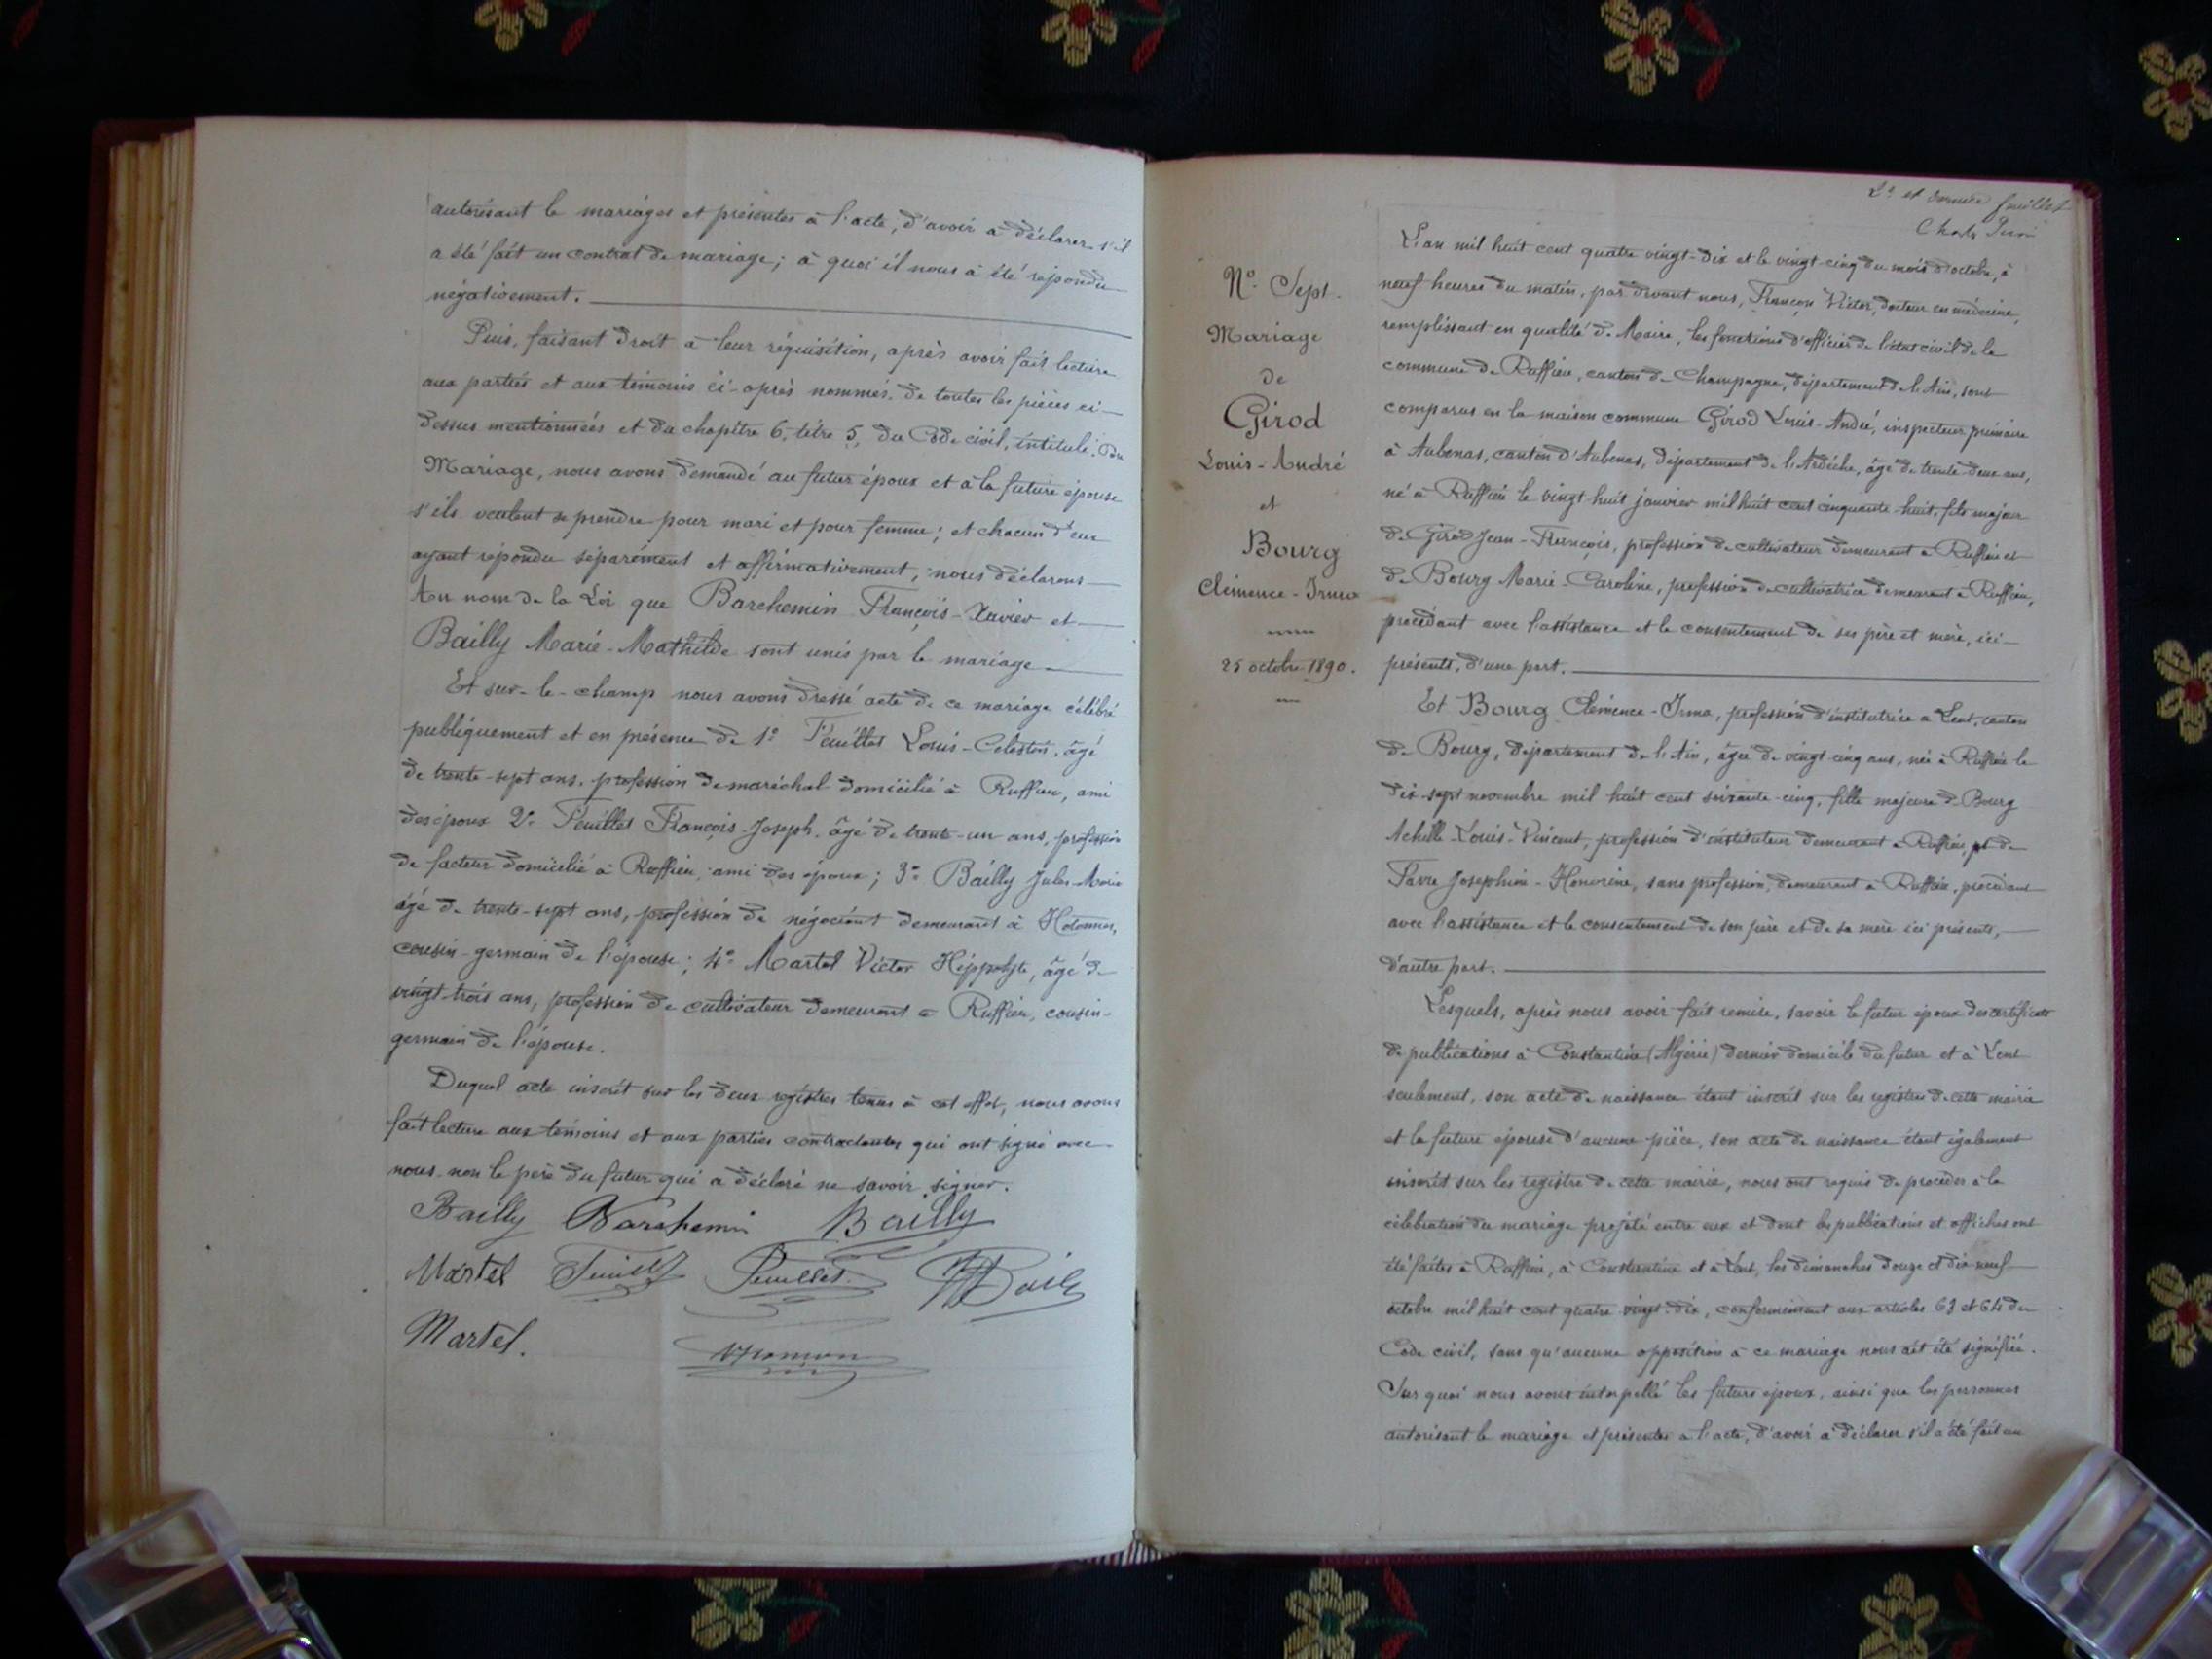 autorisant le mariages et présentes à l'acte, d'avoir à déclarer s'il
a été fait un contrat de mariage; à quoi il nous à été répondu
négativement.
Puis, faisant droit à leur réquisition, après avoir fait lecture
aux parties et aux témoins ci-après nommés, de toutes les pièces ci-
dessus mentionnées et du chapitre 6, titre 5, du Code civil, intitulé: Du
Mariage, nous avons demandé au futur époux et à la future épouse
s'ils veulent se prendre pour mari et pour femme; et chacun d'eux
ayant répondu séparément et affirmativement, nous déclarons
Au nom de la Loi que Barchemin François-Xavier et
Bailly Marie-Mathilde sont unis par le mariage
Et sur-le-champ nous avons dressé acte de ce mariage célébré
publiquement et en présence de 1° Feuillet Louis-Celestin, âgé
de trente-sept ans, profession de maréchal domicilié à Ruffieu, ami
des époux 2° Feuillet François-Joseph, âgé de trente-un ans, profession
de facteur domicilié à Ruffieu, ami des époux; 3° Bailly Jules-Marie
âgé de trente-sept ans, profession de négociant demeurant à Hotonnes,
cousin-germain de l'épouse; 4° Martel Victor Hippolyte, âgé de
vingt-trois ans, profession de cultivateur demeurant à Ruffieu, cousin-
germain de l'épouse.
Duquel acte inscrit sur les deux registres tenus à cet effet, nous avons
fait lecture aux témoins et aux parties contractantes qui ont signé avec
nous non le père du futur qui a déclaré ne savoir signer.
Bailly Barchemin Bailly
Martel Feuillet Feuillet
Martel.
2e et dernier feuillet
N° Sept.
Mariage
de
Girod
Louis-André
et
Bourg
Clémence-Irma
25 octobre 1890.
L'an mil huit cent quatre vingt-dix et le vingt-cinq du mois d'octobre, à
neuf heures du matin, par devant nous, Françon Victor, docteur en médecine,
remplissant en qualité de Maire, les fonctions d'officier de l'état civil de la
commune de Ruffieu, canton de Champagne, département de l'Ain, sont
comparus en la maison commune Girod Louis-André, inspecteur primaire
à Aubenas, canton d'Aubenas, département de l'Ardèche, âgé de trente-deux ans,
né à Ruffieu le vingt huit janvier mil huit cent cinquante-huit, fils majeur
de Girod Jean-François, profession de cultivateur demeurant à Ruffieu et
de Bourg Marie-Caroline, profession de cultivatrice demeurant à Ruffieu,
procédant avec l'assistance et le consentement de ses père et mère, ici
présents, d'une part.
Et Bourg Clémence-Irma, profession d'institutrice à Lent, canton
de Bourg, département de l'Ain, âgée de vingt-cinq ans, née à Ruffieu le
dix-sept novembre mil huit cent soixante-cinq, fille majeure de Bourg
Achille-Louis-Vincent, profession d'instituteur demeurant à Ruffieu, et de
Favre Josephine-Honorine, sans profession, demeurant à Ruffieu, procédant
avec l'assistance et le consentement de son père et de sa mère ici présents,
d'autre part.
Lesquels, après nous avoir fait remise, savoir le futur époux des certificats
de publications à Constantine (Algérie) dernier domicile du futur et à Lent
seulement, son acte de naissance étant inscrit sur les registres de cette mairie
et la future épouse d'aucune pièce, son acte de naissance étant également
inscrit sur les registre de cette mairie, nous ont requis de procéder à la
célébration du mariage projeté entre eux et dont les publications et affiches ont
été faites à Ruffieu, à Constantine et à Lent, les dimanches douze et dix-neuf
octobre mil huit cent quatre vingt-dix, conformément aux articles 63 et 64 du
Code civil, sans qu'aucune opposition à ce mariage nous ait été signifiée.
Sur quoi nous avons interpellé les futurs époux, ainsi que les personnes
autorisant le mariage et présentes à l'acte, d'avoir à déclarer s'il a été fait un